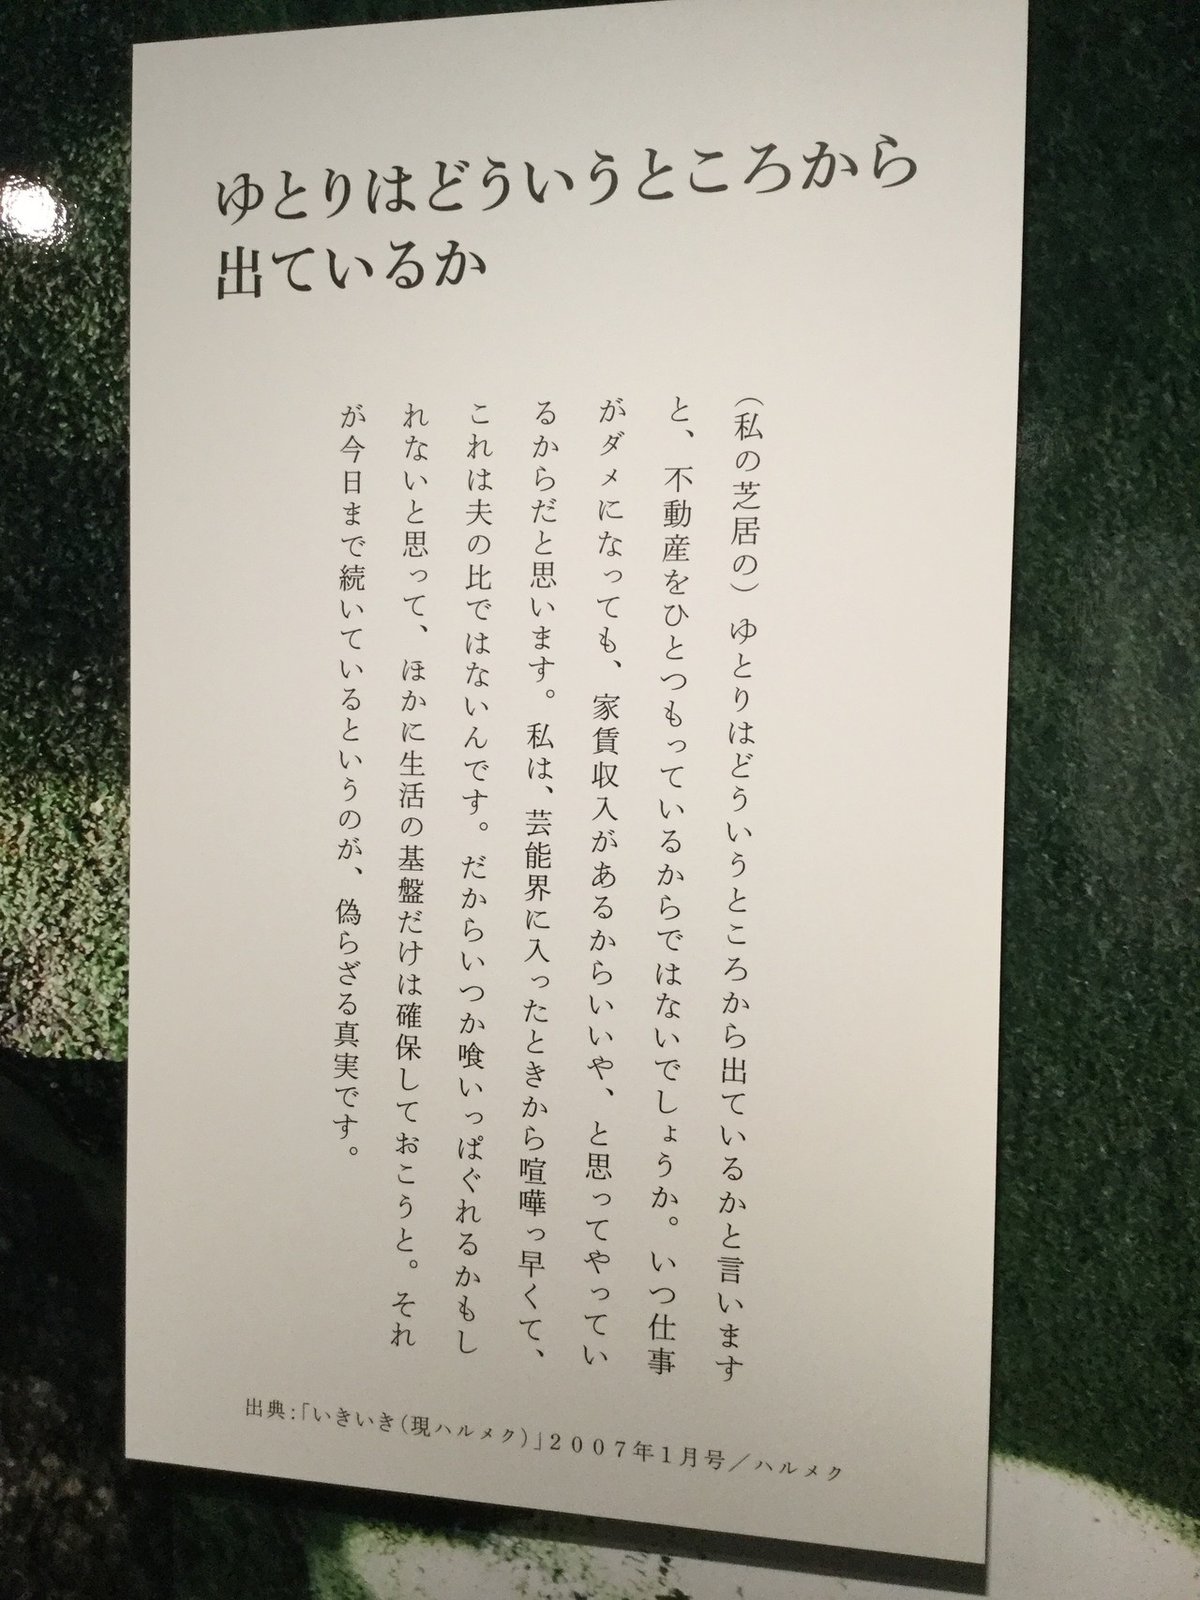 ゆとりはどういうところから
出ているか
（私の芝居の）ゆとりはどういうところから出ているかと言います
と、不動産をひとつもっているからではないでしょうか。いつ仕事
がダメになっても、家賃収入があるからいいや、と思ってやってい
るからだと思います。私は、芸能界に入ったときから喧嘩っ早くて、
これは夫の比ではないんです。だからいつか喰いっぱぐれるかもし
れないと思って、ほかに生活の基盤だけは確保しておこうと。それ
が今日まで続いているというのが、偽らざる真実です。
出典：「いきいき（現ハルメク）」2007年1月号／ハルメク